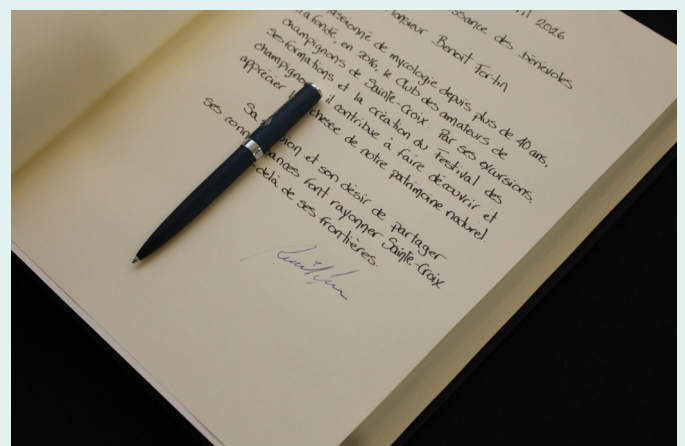 2026
ssance des bénévoles
onsieur Benoit Fortin
assionné de mycologie depuis plus de 40 ans,
a fondé, en 2016, le Club des amateurs de
champignons de Sainte-Croix. Par ses excursions,
ses formations et la création du Festival des
champigno il contribue à faire découvrir et
apprécier l chesse de notre patrimoine naturel.
Sa ion et son désir de partager
ses conn ances font rayonner Sainte-Croix
delà de ses frontières.